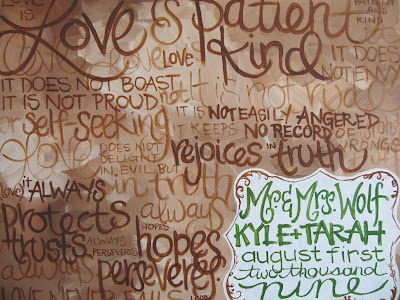 LOVE IS
Love is patient
PATIENT AND KIND
kind
LOVE
IT DOES
NOT ENVY
IT DOES NOT BOAST
IT IS NOT PROUD
It is not rude
IT IS NOT EASILY ANGERED
or self-seeking
IT KEEPS NO RECORD OF WRONGS
Love
DOES NOT DELIGHT IN EVIL, BUT
rejoices in truth
in truth
(love) it ALWAYS
protects
always
trusts
HOPES
ALWAYS PERSEVERES
hopes
always
perseveres
LOVE
Mr & Mrs. Wolf
KYLE + TARAH
august first
two thousand
nine